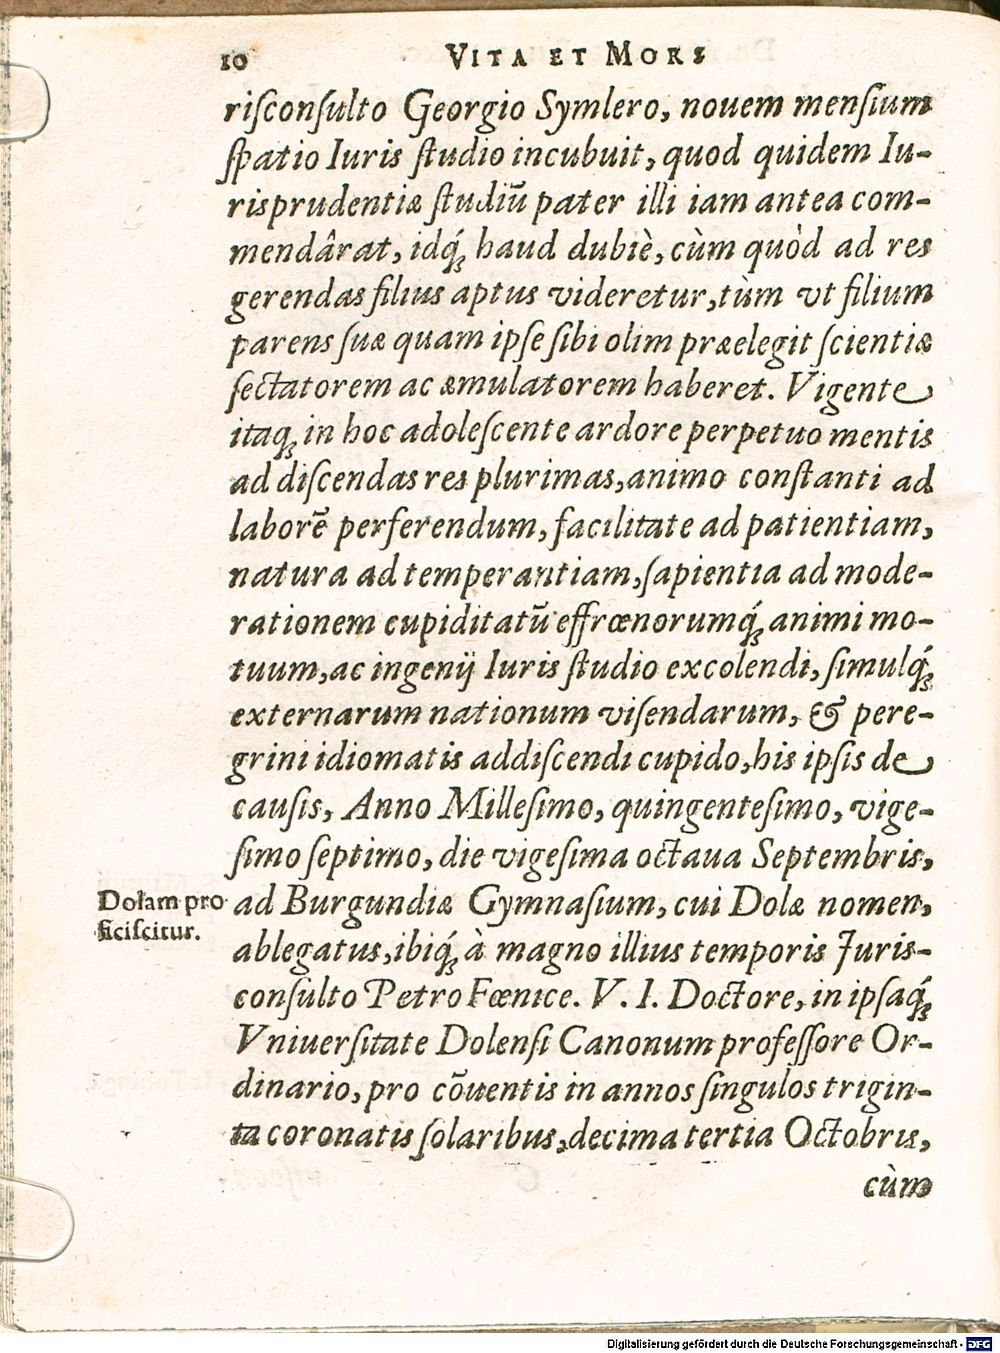 10 VITA ET MORS
riſconſulto Georgio Symlero, nouem menſium
ſpatio Iuris ſtudio incubuit, quod quidem Iu-
risprudentiæ ſtudiũ pater illi iam antea com-
mendârat, idq́ꝫ haud dubiè, cùm quòd ad res
gerendas filius aptus videretur, tùm vt filium
parens ſuæ quam ipſe ſibi olim præelegit ſcientiæ
ſectatorem ac æmulatorem haberet. Vigente
itaqꝫ in hoc adoleſcente ardore perpetuo mentis
ad diſcendas res plurimas, animo conſtanti ad
laborẽ perferendum, facilitate ad patientiam,
natura ad temperantiam, ſapientia ad mode-
rationem cupiditatũ effrœnorumq́ꝫ animi mo-
tuum, ac ingenij Iuris ſtudio excolendi, ſimulq́ꝫ
externarum nationum viſendarum, & pere-
grini idiomatis addiſcendi cupido, his ipſis de
cauſis, Anno Milleſimo, quingenteſimo, vige-
ſimo ſeptimo, die vigeſima octaua Septembris,
Dolam pro
ficiſcitur.
ad Burgundiæ Gymnaſium, cui Dolæ nomen,
ablegatus, ibiq́ꝫ à magno illius temporis Juris-
conſulto Petro Fœnice. V. I. Doctore, in ipſaq́ꝫ
Vniuerſitate Dolenſi Canonum profeſſore Or-
dinario, pro cõuentis in annos ſingulos trigin-
ta coronatis ſolaribus, decima tertia Octobris,
cùm
Digitalisierung gefördert durch die Deutsche Forschungsgemeinschaft - DFG